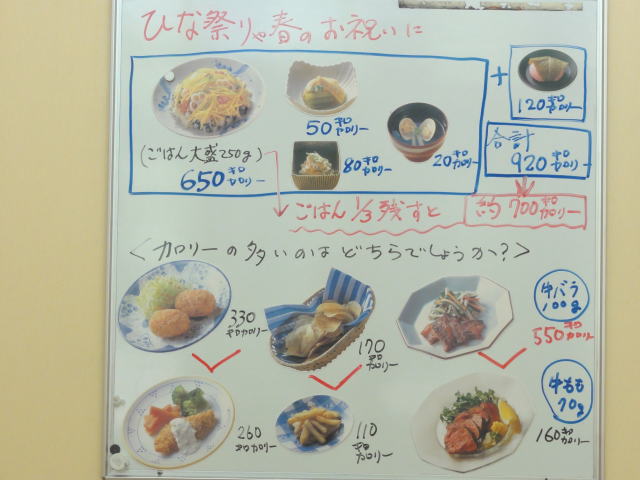 ひな祭りや春のお祝いに
+
120キロカロリー
50キロカロリー
(ごはん大盛250g)
650キロカロリー
80キロカロリー
20キロカロリー
合計
920キロカロリー
ごはん1/3残すと
約700キロカロリー
<カロリーの多いのはどちらでしょうか?>
330
キロカロリー
170
キロカロリー
牛バラ
100g
550キロカロリー
260
キロカロリー
110
キロカロリー
牛もも
70g
160キロカロリー